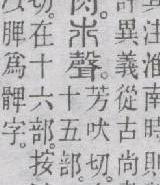 注淮南時則
異義從古尚
肉。𣎵聲。芳吠切。
十五部。
切。在十六部。按
脾爲髀字。